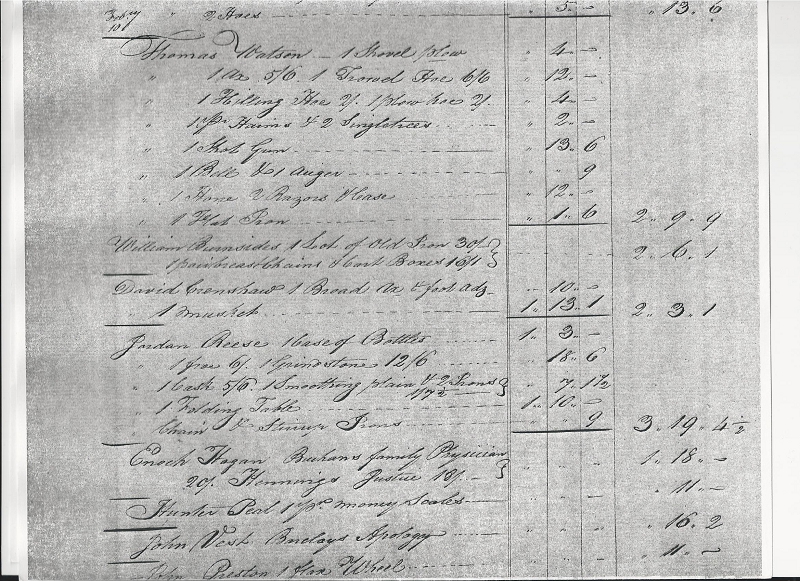 Feby 10 " 2 Hoes " 5 " - " 13 " 6
Thomas Watson - 1 Shovel plow " 4 " -
" 1 Ax 5/6 1 Trowel Hoe 6/6 " 12 " -
" 1 Hilling Hoe 2/. 1 plow hoe 2/. " 4 " -
" 1 pr Haims & 2 Singletrees " 2 " -
" 1 Shot Gun " 13 " 6
" 1 Bell & 1 Auger " " 9
" 1 Hone 2 Razors & Case " 12 " -
" 1 Flat Iron " 1 " 6 2 " 9 " 9
William Burnsides 1 Lot of Old Iron 30/.
1 pair breast Chains & Cart Boxes 16/1 } 2 " 6 " 1
David Crenshaw 1 Broad Ax & foot Adz " 10 " -
" 1 Musket 1 " 13 " 1 2 " 3 " 1
Jordan Reese 1 Case of Bottles 1 " 3 " -
" 1 froe 6/. 1 Grindstone 12/6 " 18 " 6
" 1 Cask 5/6. 1 Smoothing plain & 2 Irons 1/7½ } " 7 " 1½
" 1 Folding Table 1 " 10 " -
" Chain & Stirrup Irons " " 9 3 " 19 " 4½
Enoch Hagan Buchans family Physician
20/. Hennings Justice 18/. } 1 " 18 " -
Hunter Peal 1 pr money Scales " 11 " -
John Vest Barclays Apology " 16 " 2
John Preston 1 flax Wheel " 11 " -